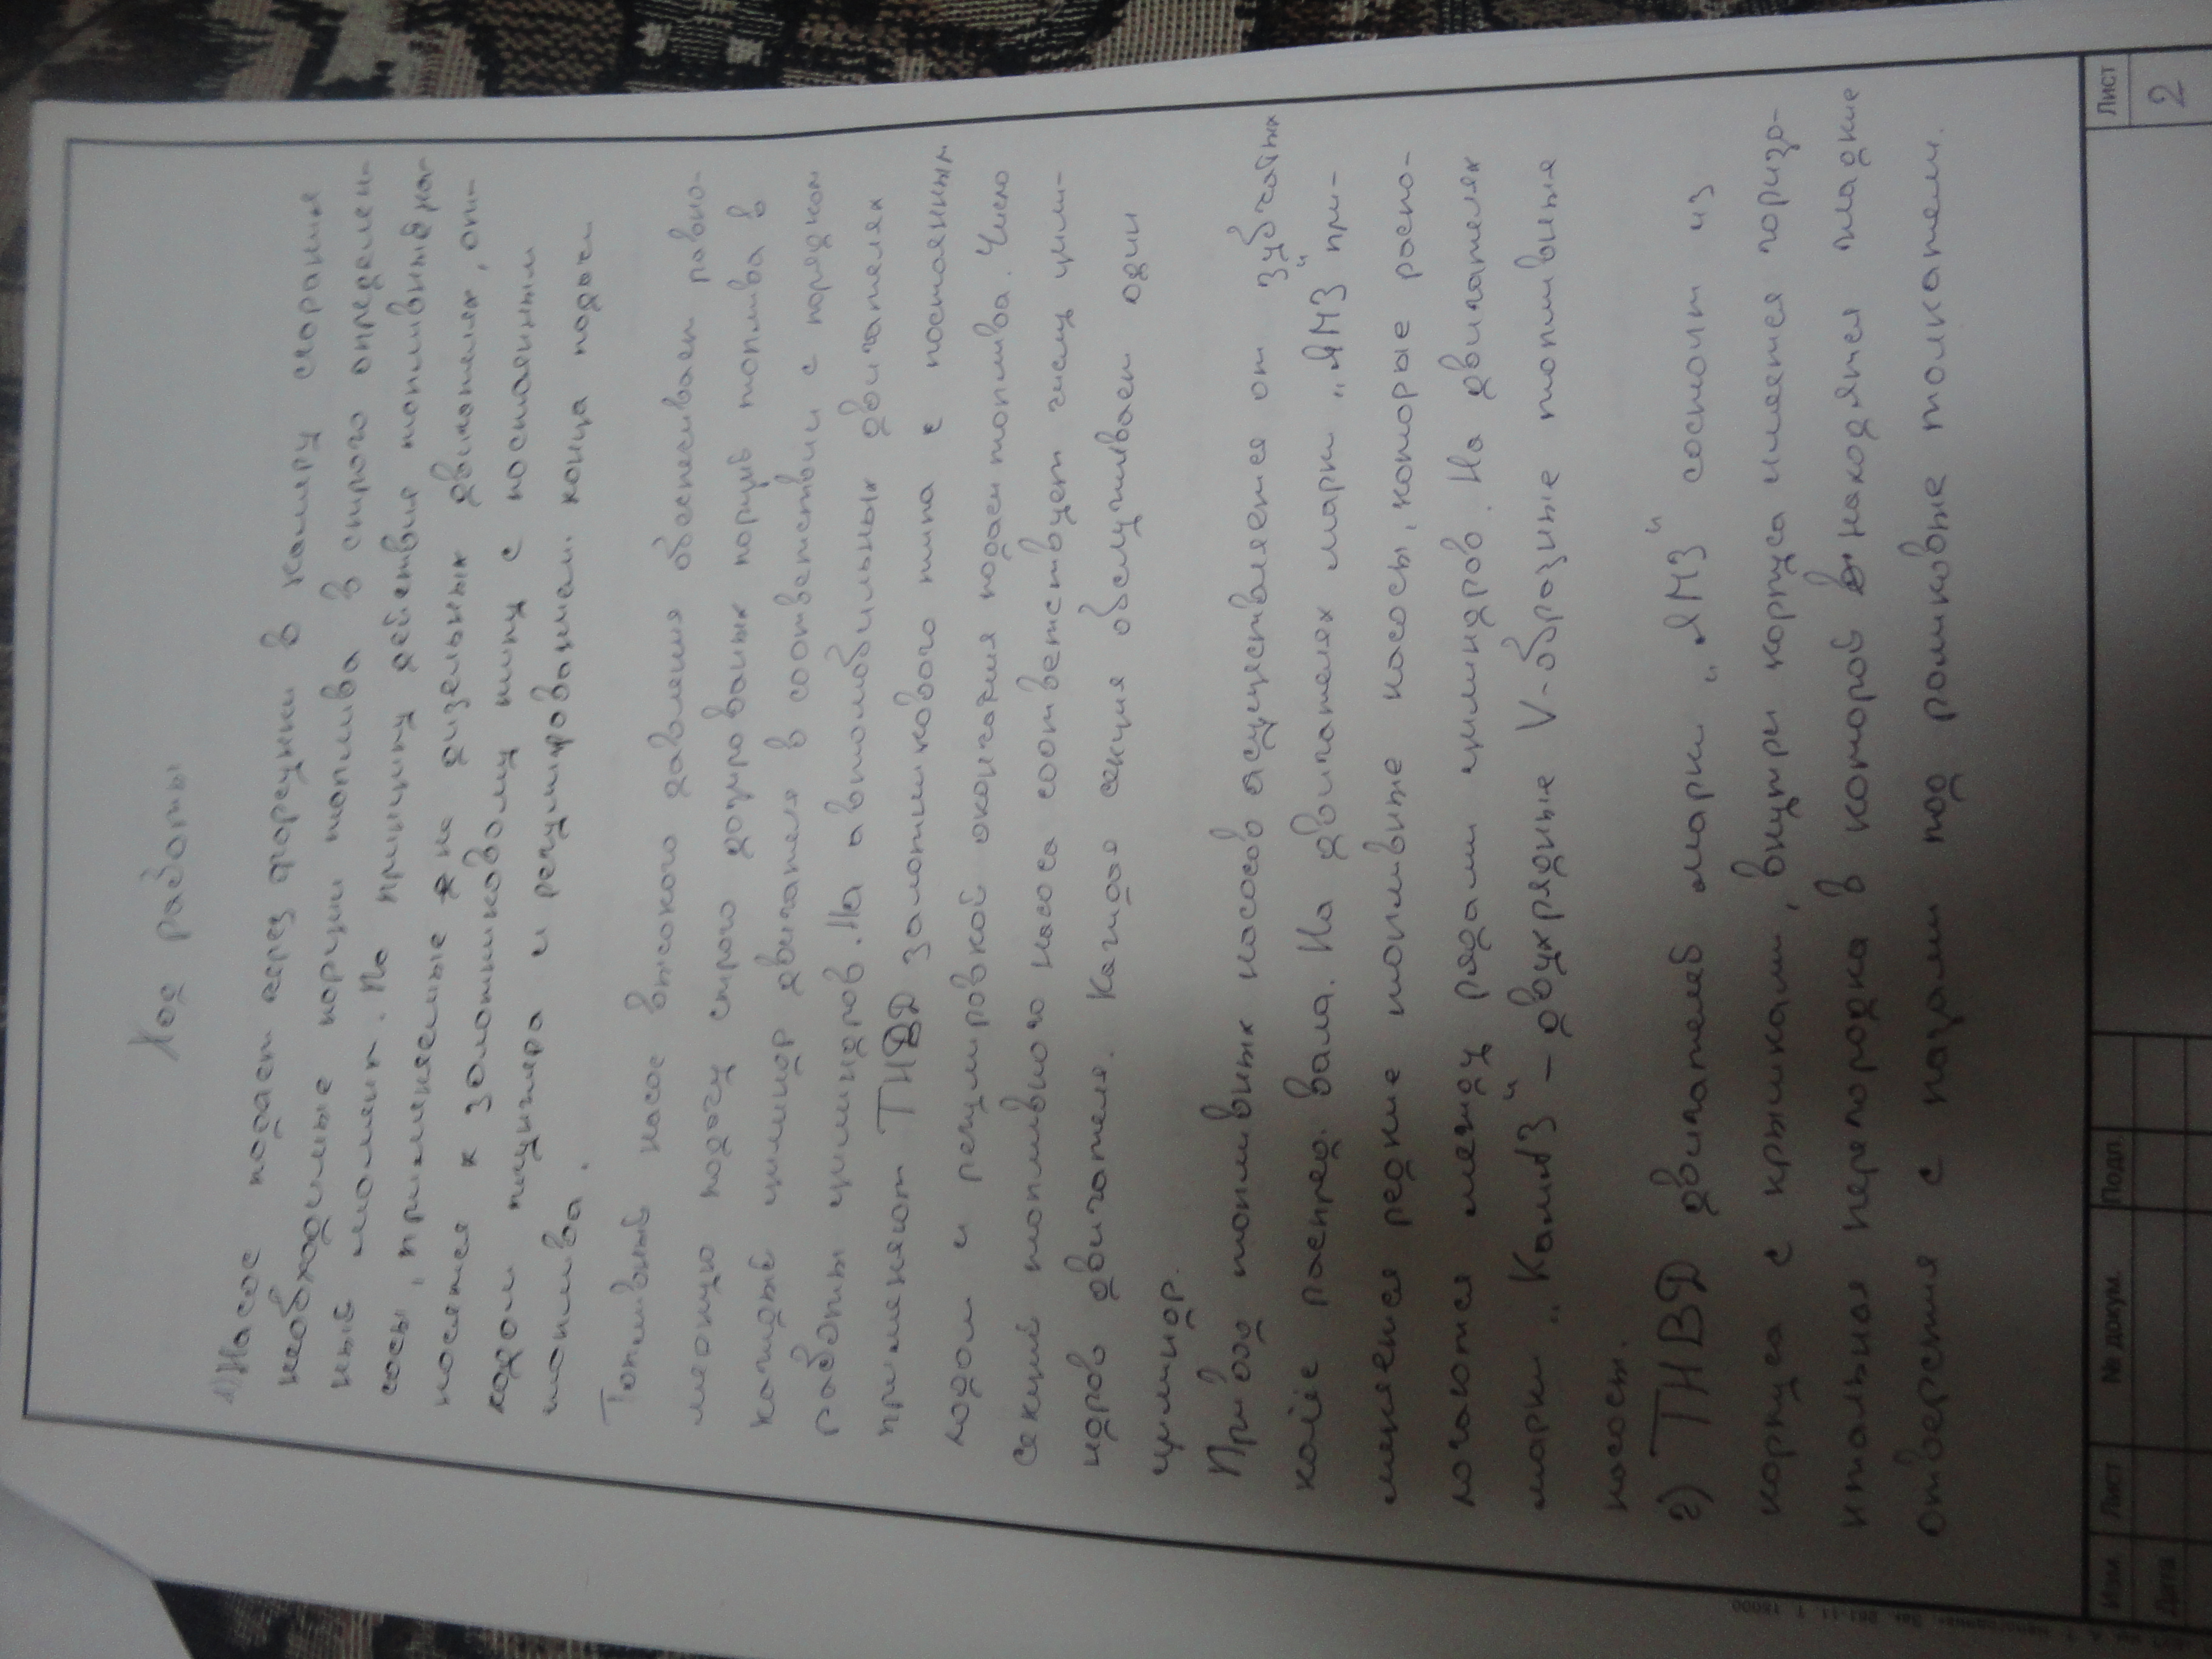 Ход работы
1) Насос подает через форсунки в камеру сгорания
необходимые порции топлива в строго определен-
ный момент. По принципу действия топливные на-
сосы, применяемые на дизельных двигателях, от-
носятся к золотниковому типу с постоянным
ходом плунжера и регулированием конца подачи
топлива.
Топливный насос высокого давления обеспечивает равно-
мерную подачу строго дозированых порций топлива в
каждый цилиндр двигателя в соответствии с порядком
работы цилиндров. На автомобильных двигателях
применяют ТНВД золотникового типа с постоянным
ходом и регулировкой окончания подачи топлива. Число
секций топливного насоса соответствует числу цилин-
ндров двигателя. Каждая секция обслуживает один
цилиндр.
Привод топливных насосов осуществляется от зубчатых
колёс распред. вала. На двигателях марки „ЯМЗ" при-
меняются рядные топливные насосы, которые распо-
логаются между рядами цилиндров. На двигателях
марки „КамАЗ" – двухрядные V-образные топливные
насосы.
2) ТНВД двигателей марки „ЯМЗ" состоит из
корпуса с крышками, внутри корпуса имеется горизо-
нтальная перегородка в которой находятся гладкие
отверстия с пазами под роликовые толкатели.
Изм Лист № докум. Подп.
Дата
Лист
2